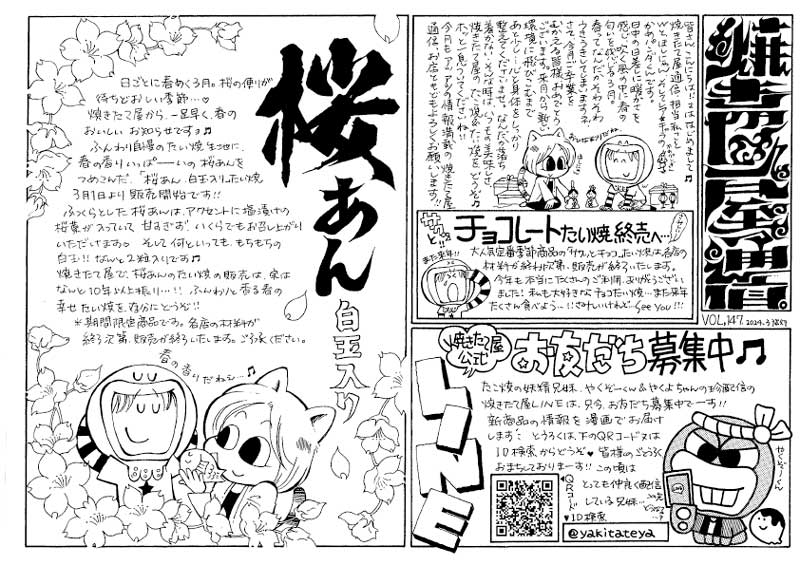 焼きたて屋通信
VOL,147. 2024.3月発行
皆さん、こんにちは!!はじめまして♪
焼きたて屋通信、担当、私っこ
かめパンダさんです。
日中の日差しに暖かさを
感じ、吹く風の中に、春の
匂いを感じる3月。
春ってなんだかそわそわ
うきうきしてしまいますネ。
さて、今月ご卒業を
むかえる皆様、おめでとう
ございます。来月から新しい
環境に飛びこむまで
あと少し…心と身体をしっかり
整えてくださいませ。なんだか気持ち
着かない、そんな時は、いつもの美味しさ、
焼きたて屋の、たい焼&たこ焼をどうぞ♪
ホッと一息つつてくださいね。
今月も、アツアツの情報満載の焼きたて屋
通信、お店ともどもよろしくお願いします!!
桜あん
白玉入り
日ごとに春めく3月。桜の便りが
待ちどおしい季節…♡
焼きたて屋から、一足早く、春の
おいしいお知らせです♪
ふんわり自慢のたい焼生地に、
春の香りいっぱーーいの桜あんを
つめこんだ、「桜あん・白玉入り」たい焼
3月1日より販売開始です!!
ふっくらとした桜あんは、アクセントに塩漬けの
桜葉が入っていて、甘すぎず、いくらでもお召し上がり
いただけます。そして何といっても、もちもちの
白玉!!なんと2粒入りです♪
焼きたて屋で、桜あんのたい焼の販売は、実は
なんと10年以上振り…!!ふんわりと香る春の
幸せたい焼を、存分にどうぞ!!
*期間限定商品です。各店の材料が
終了次第、販売が終了いたします。ご了承ください。
春の香りだねぇ〜♪
サクッと!!
チョコレートたい焼終売へ…
また来年!!
大人気定番季節商品の「サクッとチョコ」たい焼は、各店の
材料が終わり次第、販売が終了いたします。
今年もたくさんのご利用、ありがとうござい
ました!私も大好きなチョコたい焼…また来年
たくさん食べよう…!!さみしいけれど… See you!!!
焼きたて屋公式
お友だち募集中♫
LINE
たこ焼の妖精兄妹、やくぞーくん&やくよちゃんの珍配信の
焼きたて屋LINEは、只今、お友だち募集中でーす!!
新商品の情報を漫画でお届け
します♪ とうろくは、下のQRコード又は
ID検索からどうぞ♥ 皆様のごとうろく
おまちしておりまーす!! この頃は
とっても仲良く配信
している兄妹…
QRコード
♥ID検索
@yakitateya
やくぞーくん